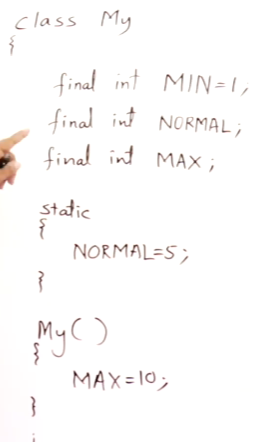 class My
{
final int MIN=1;
final int NORMAL;
final int MAX;
static
{
NORMAL=5;
}
My()
{
MAX=10;
}